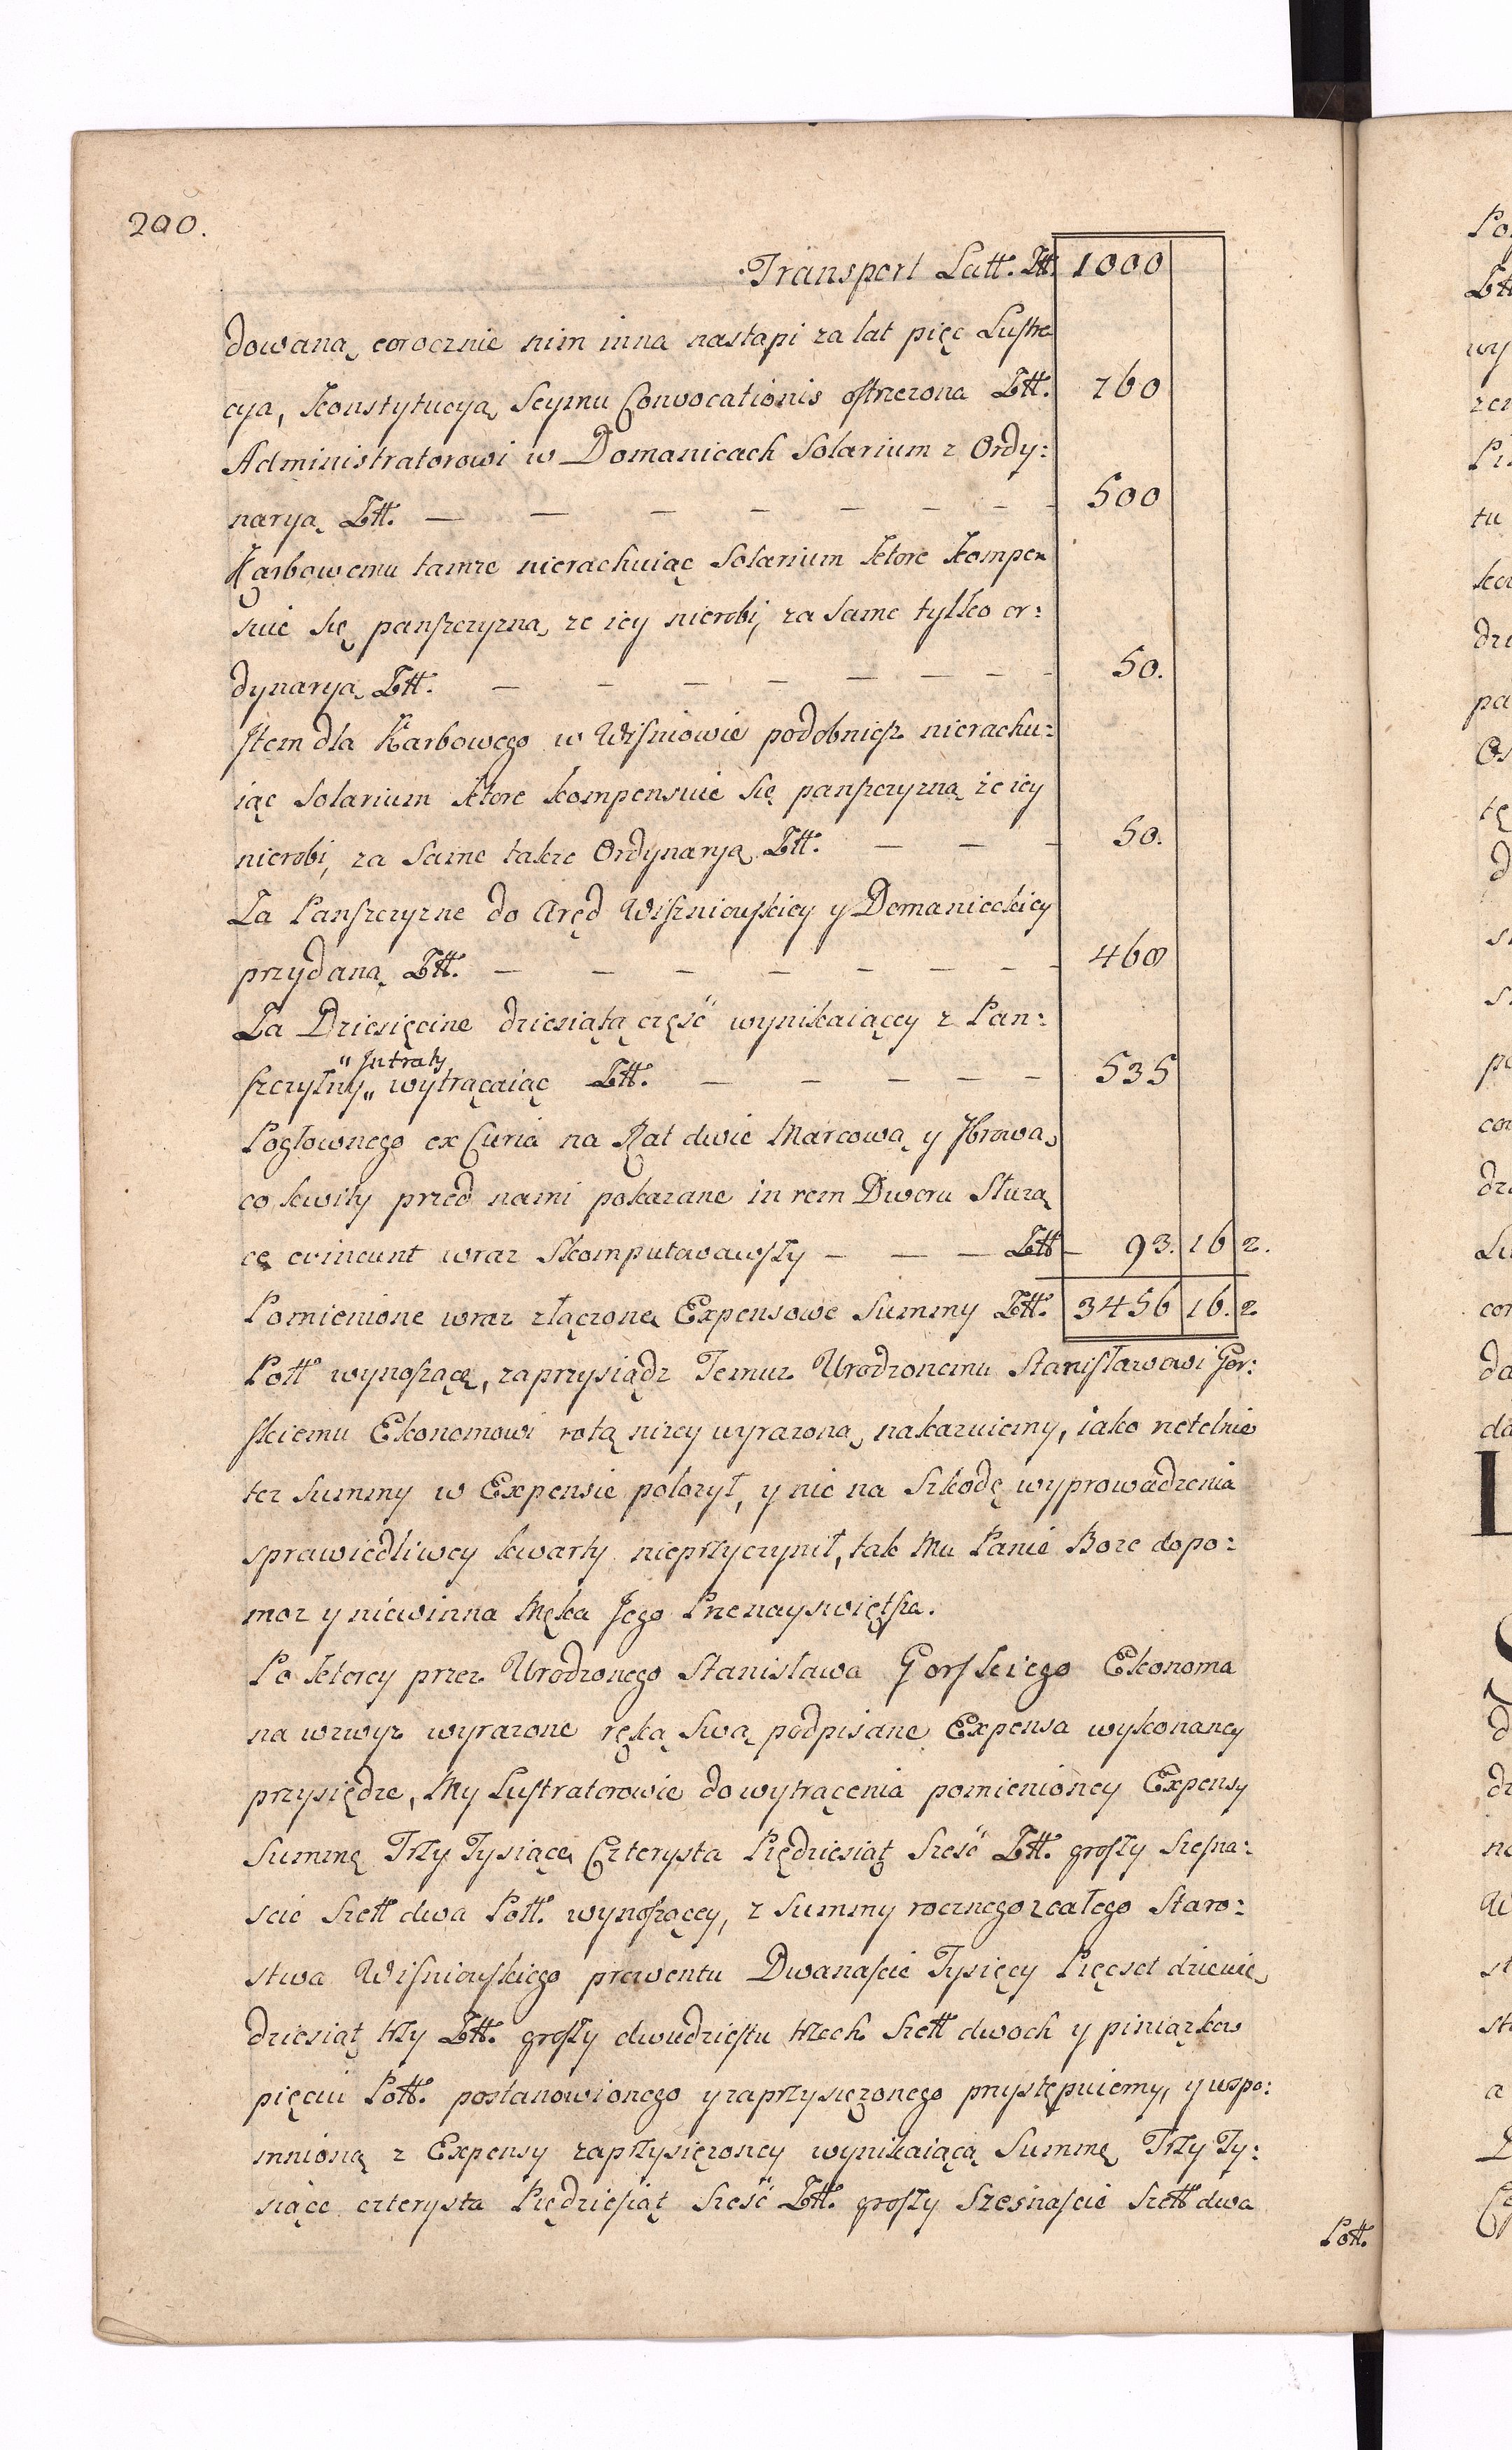 200.
Transport Latt. Ztt. 1000
dowaną corocznie nim inna nastąpi za lat pięć Lustra
cya, konstytucyą Seymu Convocationis ostrzezona Ztt. 760
Administratorowi w Domanicach Solarium z Ordy:
naryą Ztt. — — — — — — — 500
Karbowemu tamze nierachuiąc Solarium ktore kompen
suie się panszczyzną ze iey nierobi, za same tylko or:
dynaryą Ztt. — — — — — — — — 50.
Item dla Karbowego w Wiśniowie podobniesz nierachu:
iąc Solarium ktore kompensuie się panszczyzną że iey
nierobi, za same takze Ordynaryą Ztt. — — — 50.
Za Panszczyzne do Aręd Wiszniowskiey y Domanieckiey
przydaną Ztt. — — — — — — — — 460
Za Dziesięcine dziesiątą część wynikaiącey z Pan:
"Intraty
szczyzny„ wytrącaiąc Ztt. — — — — — 535
Pogłownego ex Curia na Rat dwie Marcową y 7brową,
co kwity przed nami pokazane in rem Dworu Służą
cę evincunt wraz skomputowawszy — — — Ztt — 93. 16 2.
Pomienione wraz złączone Expensowe Summy Ztt. 3456 16. 2
Pott wynoszące, zaprzysiądz Temuz Urodzonemu Stanisławowi Gor:
skiemu Ekonomowi rotą nizey wyrazoną, nakazuiemy, iako rzetelnie
tez Summy w Expensie połozył, y nic na Szkodę wyprowadzenia
sprawiedliwey kwarty nieprzyczynił, tak Mu Panie Boze dopo:
moz y niewinna Męka Jego Przenayswiętsza.
Po ktorey przez Urodzonego Stanisława Gorskiego Ekonoma
na wzwyz wyrazone ręką swą podpisane Expensa wykonaney
przysiędze, My Lustratorowie do wytrącenia pomienioney Expensy
Summę Trzy Tysiące Czterysta Piędziesiąt Sześć Ztt. groszy Szesna:
scie Szett dwa Pott. wynoszącey, z Summy rocznego z całego Staro:
stwa Wiśniowskiego prowentu Dwanascie Tysięcy Pięcset dziewię
dziesiąt trzy Ztt. groszy dwudziestu trzech Szett dwoch y piniązkow
pięciu Pott. postanowionego y zaprzysięzonego przystępuiemy, y wspo:
mnioną z Expensy zaprzysięzoney wynikaiącą Summę Trzy Ty:
siące czterysta Piędziesiąt Sześć Ztt. groszy Szesnascie Szett dwa
Pott.